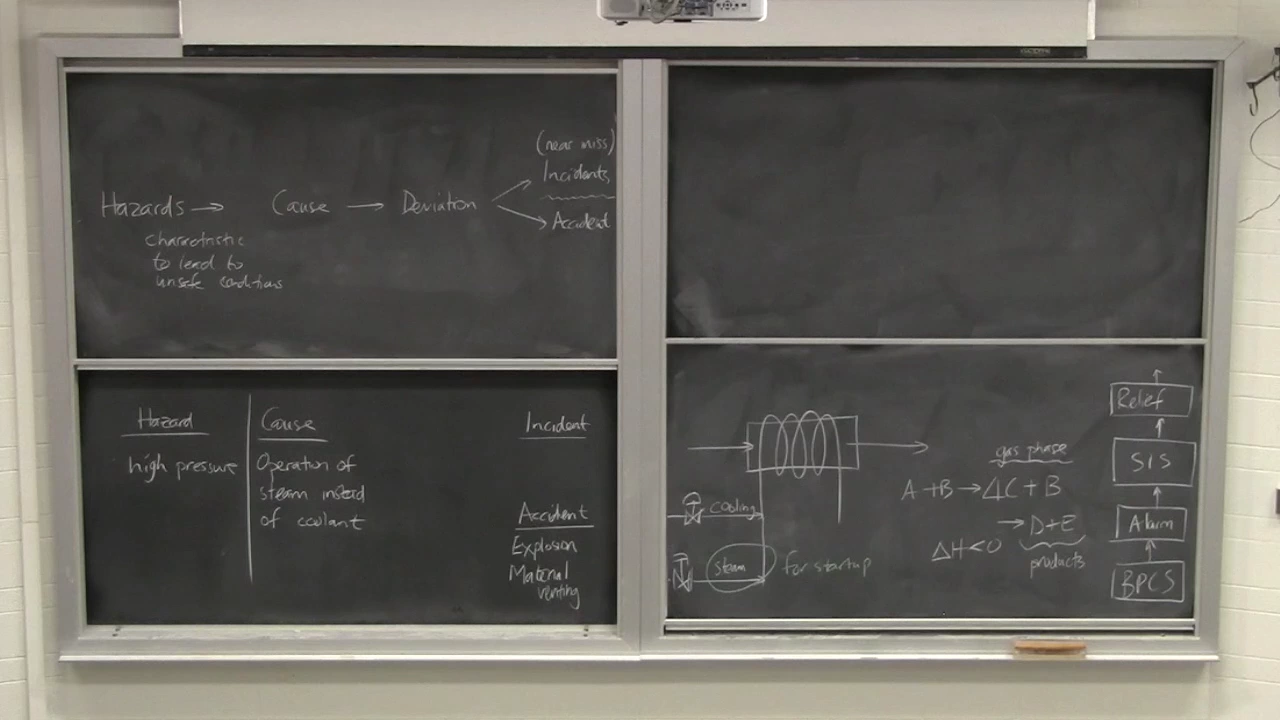 (near miss)
Incidents
Hazards → Cause → Deviation
Accident
characteristic
to lead to
unsafe conditions
Hazard
Cause
Incident
high pressure
Operation of
steam instead
of coolant
Accident
Explosion
Material
venting
cooling
steam
for startup
gas phase
A + B → 4C + B
→ D + E
ΔH < 0
products
Relief
SIS
Alarm
BPCS